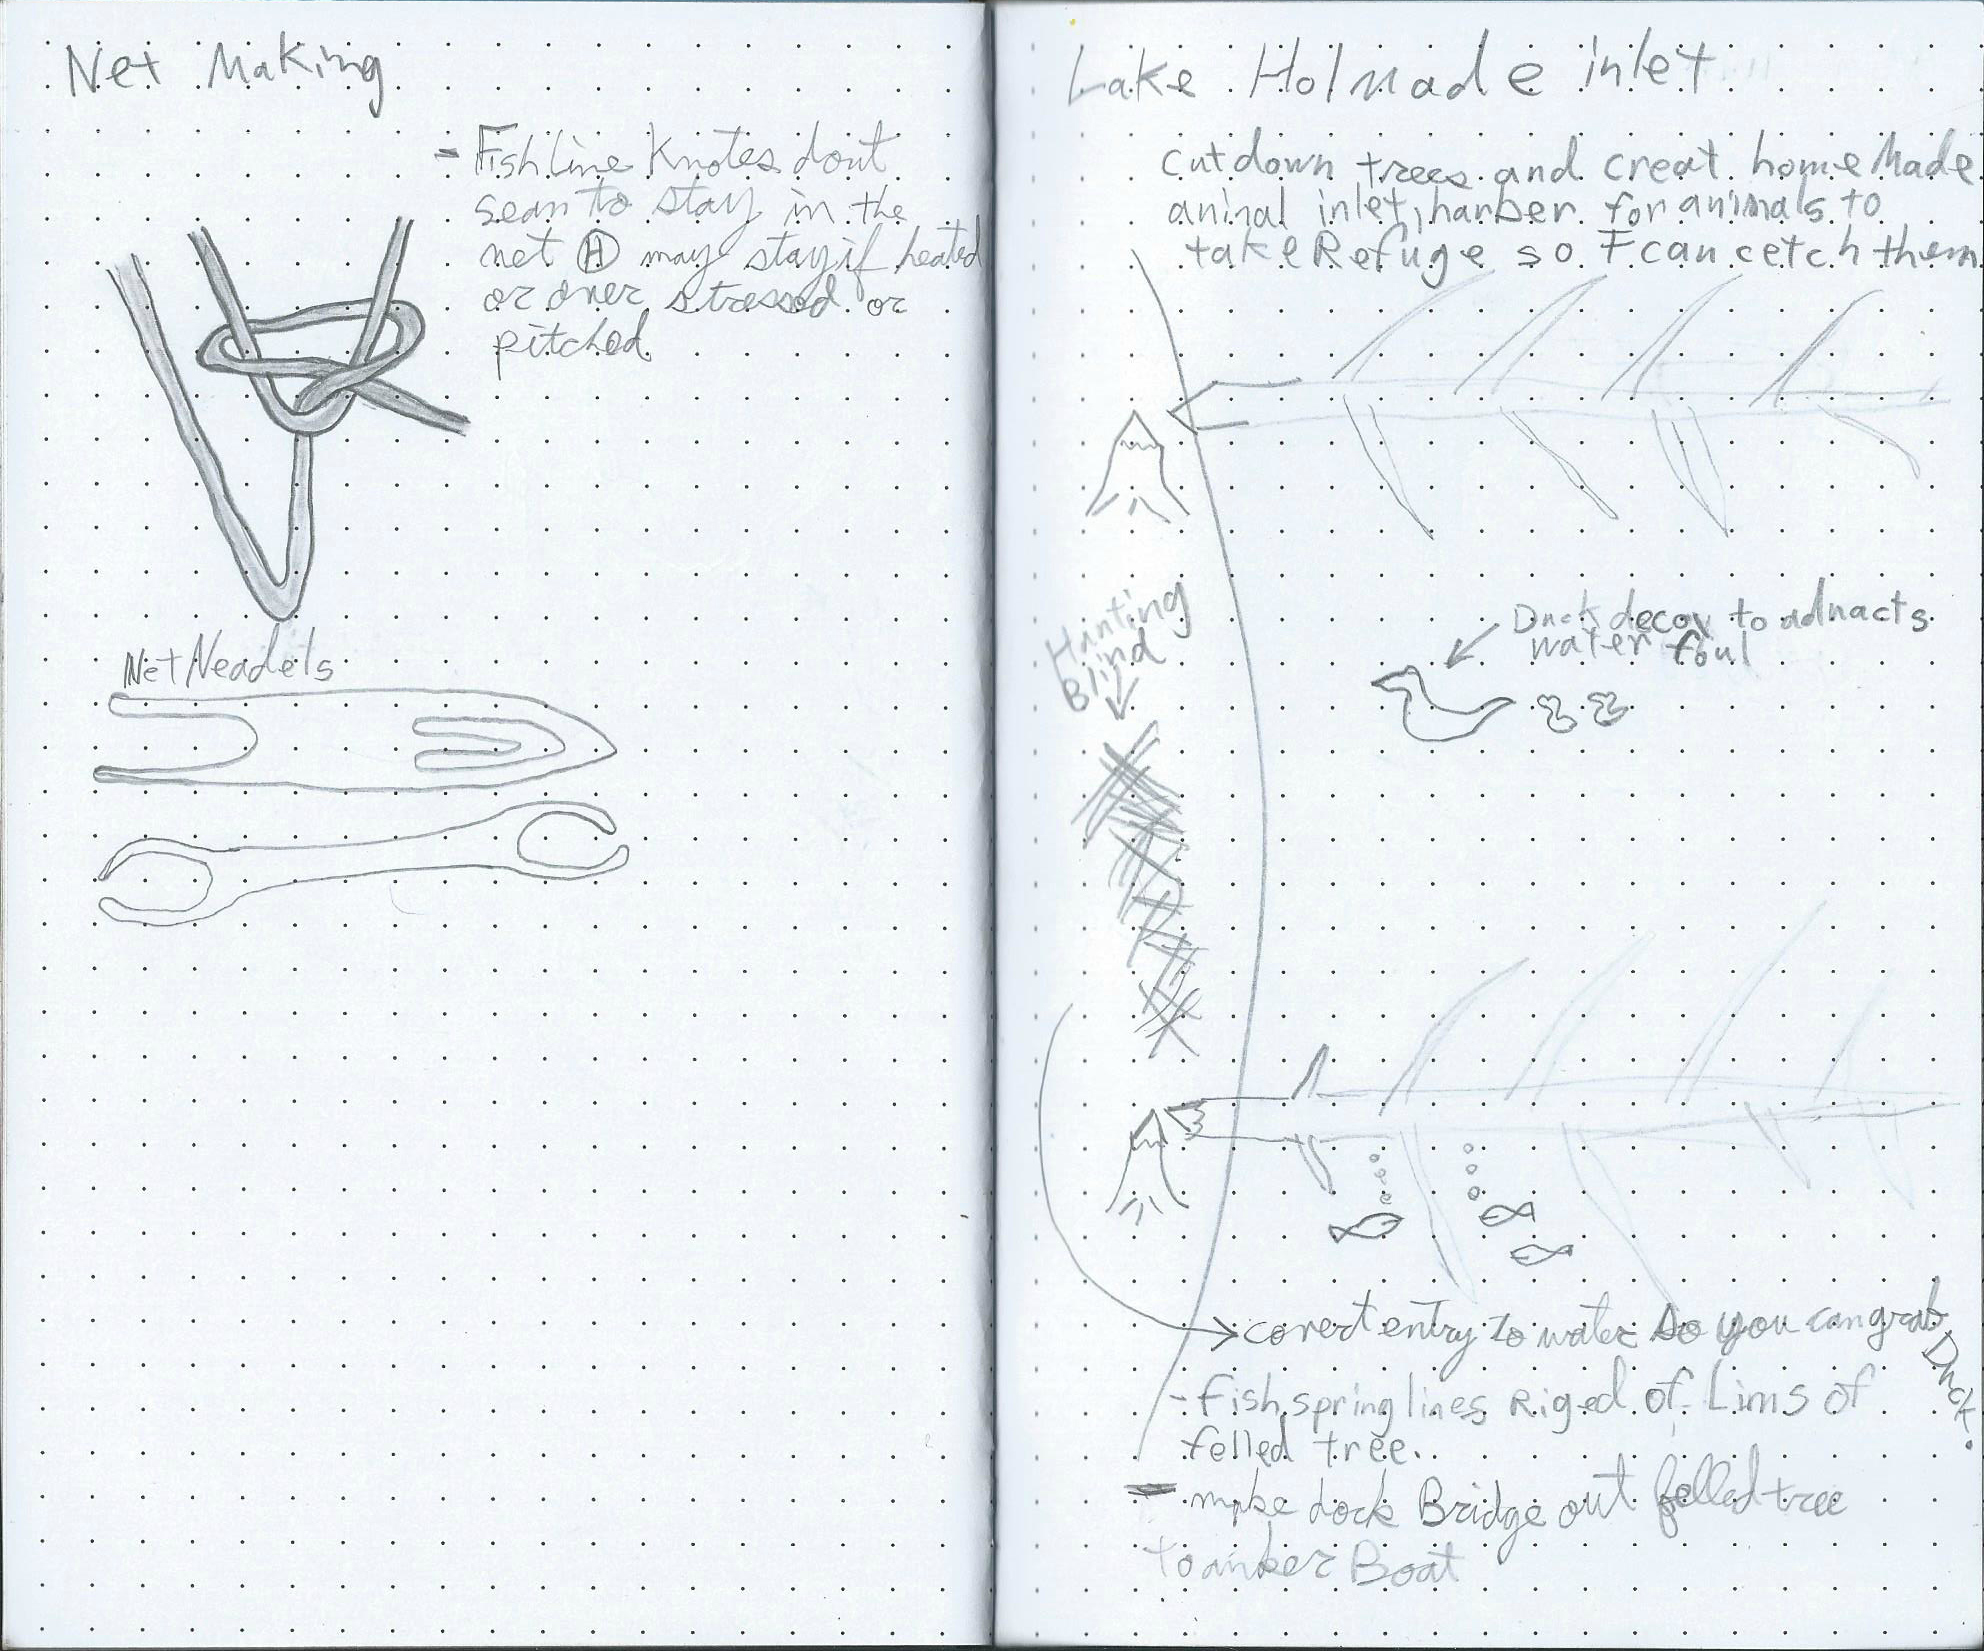 Net Making
- Fishline Knotes dont
sean to stay in the
net Ⓗ may stay if heated
or over stressed or
pitched
Net Neadels
Lake Holmade inlet
cutdown trees and creat homeMade
aninal inlet, harber for animals to
take Refuge so I can cetch them
Duck decoy to adnacts
water foul
Hunting
Blind
covert entry to water so you can grab
Duck.
- Fish spring lines Riged of Lims of
felled tree.
- make dock Bridge out felled tree
to anker Boat